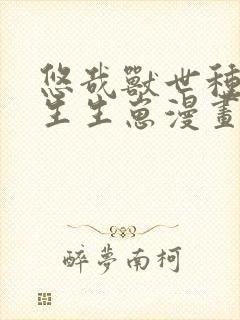 悠哉獸世種
生生崽漫畫
醉夢南柯